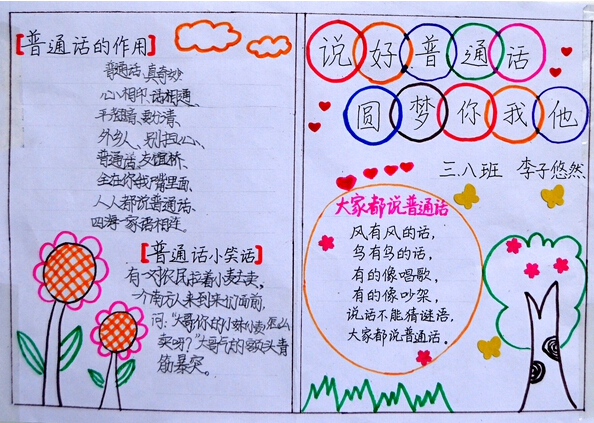 【普通话的作用】
普通话,真奇妙
心心相印、话相通、
平舌翘舌要分清、
外乡人、别担心、
普通话、友谊桥、
全在你我嘴里面、
人人都说普通话、
四海一家语相连
【普通话小笑话】
有一对农民拉着小麦去卖。
一个南方人来到来们面前,
问:“大哥你的小妹(小麦)怎么
卖呀?”大哥气的额头青
筋暴突。
说好普通话
圆梦你我他
三.八班 李子悠然
大家都说普通话
风有风的话,
鸟有鸟的话,
有的像唱歌,
有的像吵架,
说话不能猜谜语,
大家都说普通话。